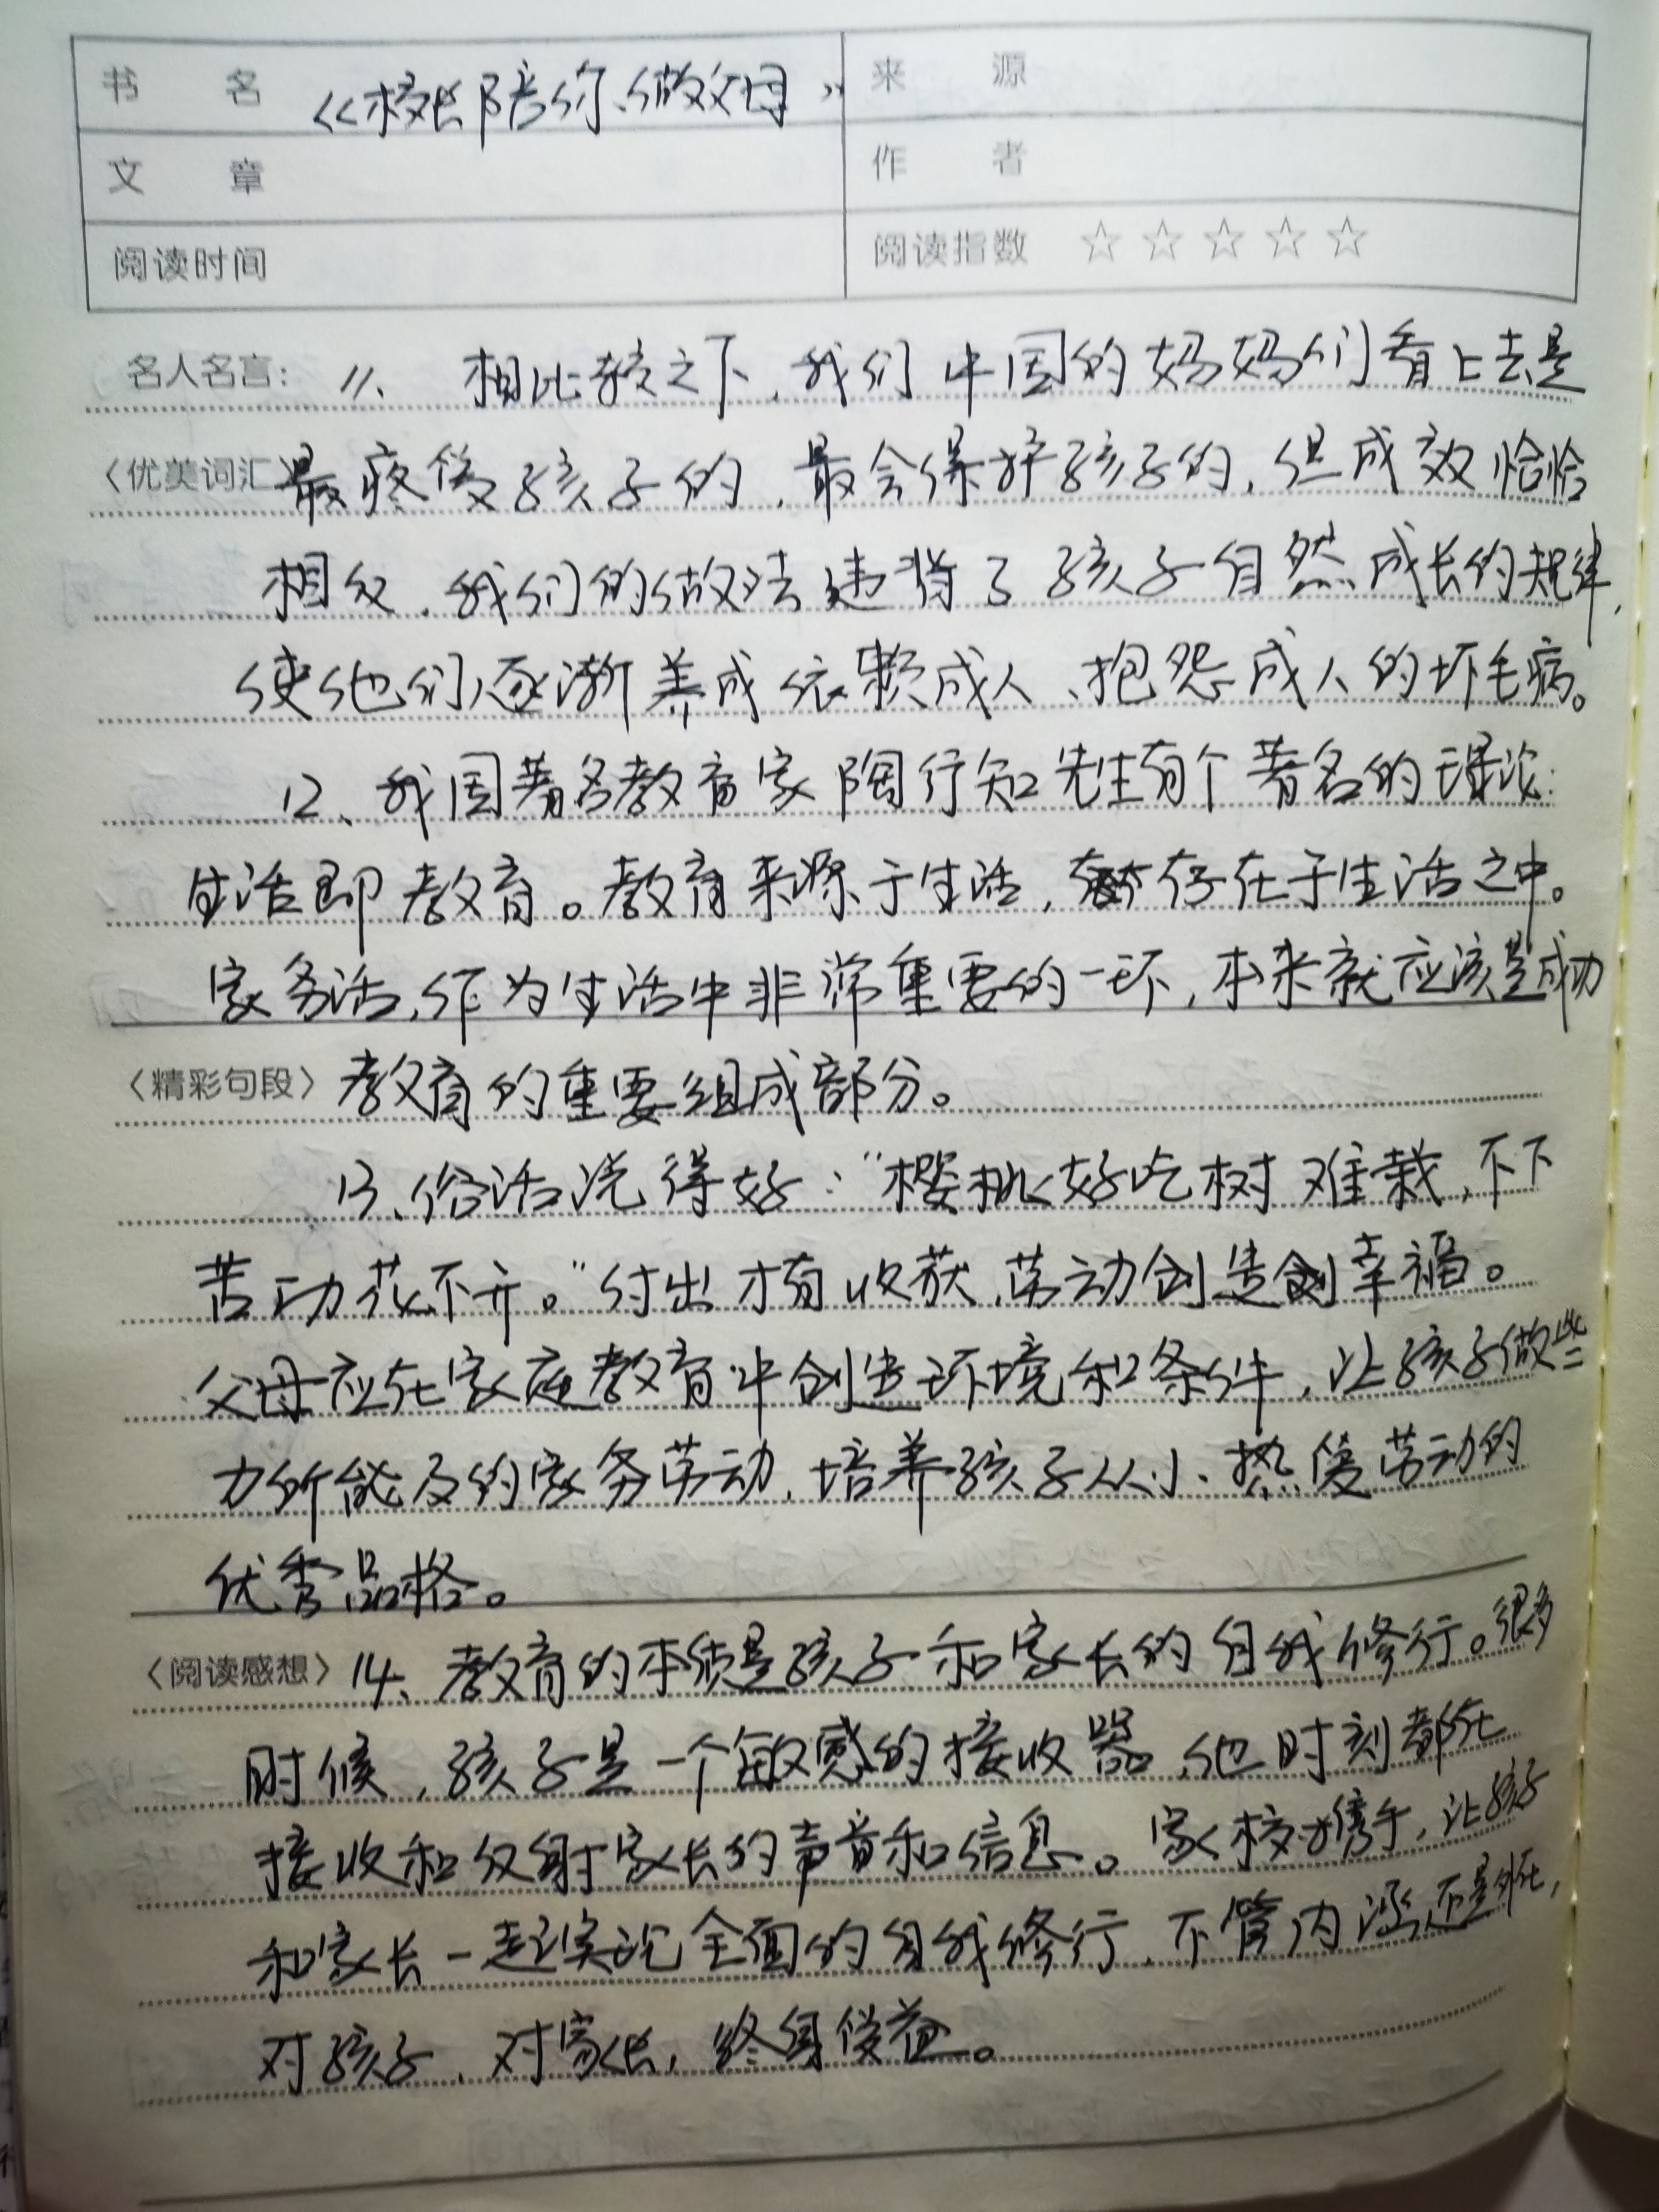 书名 《校长陪你做父母》 来源
文章 作者
阅读时间 阅读指数 ☆☆☆☆☆
名人名言: 11、相比较之下,我们中国的妈妈们看上去是
〈优美词汇〉最疼爱孩子的,最会保护孩子的,但成效恰恰
相反,我们的做法违背了孩子自然成长的规律,
使他们逐渐养成依赖成人、抱怨成人的坏毛病。
12、我国著名教育家陶行知先生有个著名的理论:
生活即教育。教育来源于生活,存在于生活之中。
家务活,作为生活中非常重要的一环,本来就应该是成功
〈精彩句段〉教育的重要组成部分。
13、俗话说得好:“樱桃好吃树难栽,不下
苦功花不开。”付出才有收获,劳动创造幸福。
父母应在家庭教育中创造环境和条件,让孩子做些
力所能及的家务劳动,培养孩子从小热爱劳动的
优秀品格。
〈阅读感想〉14、教育的本质是孩子和家长的自我修行。很多
时候,孩子是一个敏感的接收器,他时刻都在
接收和反射家长的声音和信息。家校携手,让孩子
和家长一起实现全面的自我修行,不管内涵还是外在,
对孩子,对家长,终身受益。